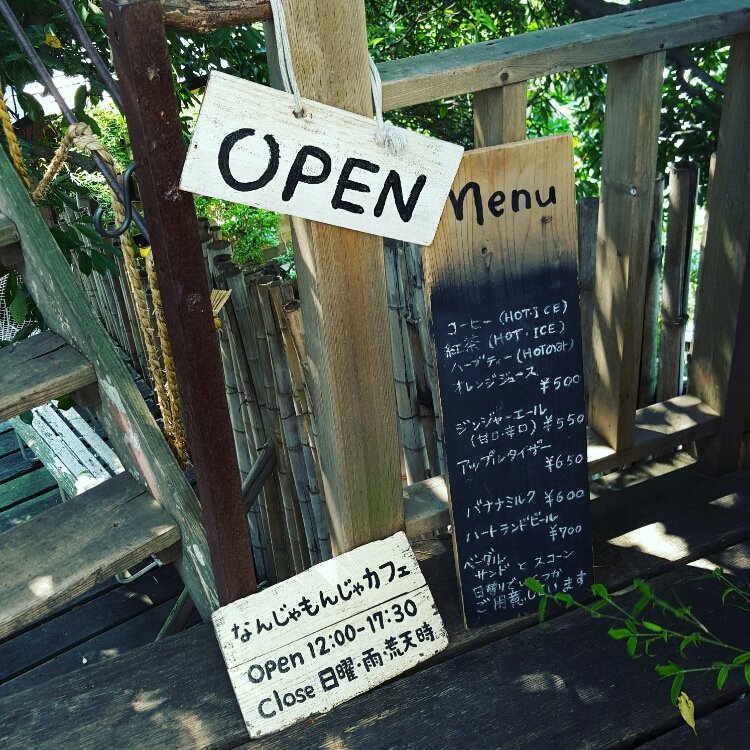 OPEN
Menu
コーヒー (HOT・ICE)
紅茶 (HOT・ICE)
ハーブティー (HOTのみ)
オレンジジュース
¥500
ジンジャーエール
(甘口・辛口) ¥550
アップルタイザー
¥650
バナナミルク ¥600
ハートランドビール
¥700
ベーグル
サンドとスコーン
日替りで
ご用意しています
なんじゃもんじゃカフェ
Open 12:00-17:30
Close 日曜・雨・荒天時